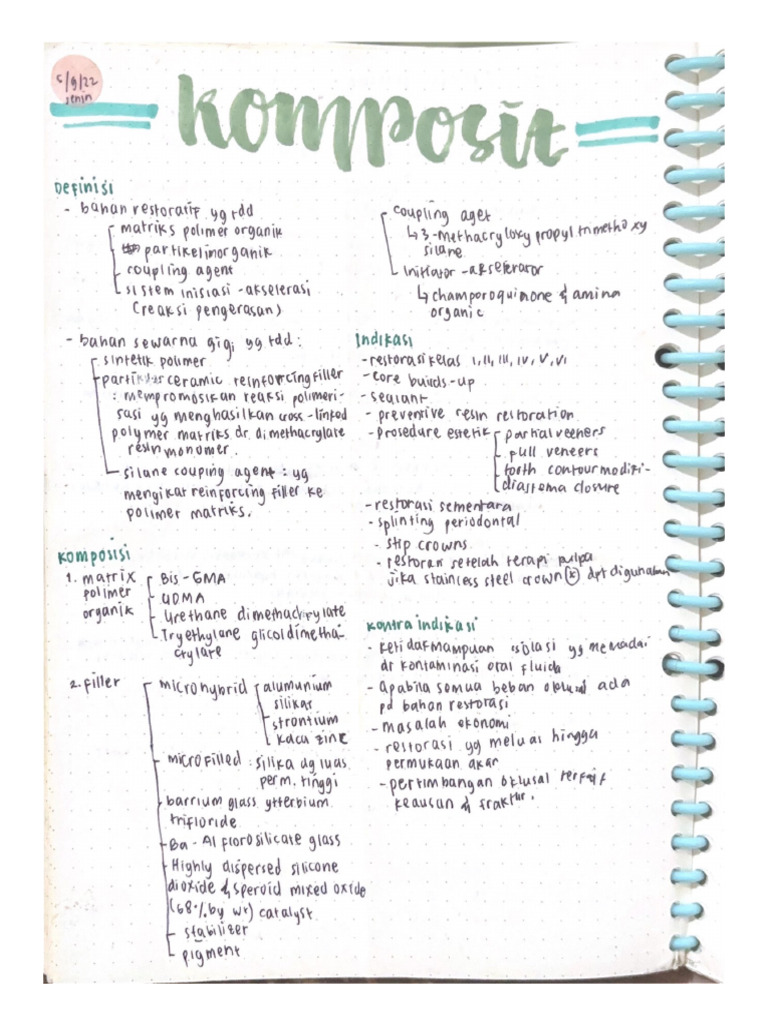 5/9/22
senin
Komposit
Definisi
- bahan restoratif yg tdd
matriks polimer organik
partikel inorganik
coupling agent
sistem inisiasi - akselerasi
(reaksi pengerasan)
- bahan sewarna gigi yg tdd :
sintetik polimer
partikular ceramic reinforcing filler
: mempromosikan reaksi polimeri-
sasi yg menghasilkan cross-linked
polymer matriks dr dimethacrylate
resin monomer.
silane couping agent : yg
mengikat reinforcing filler ke
polimer matriks.
Komposisi
1. matrix
polimer
organik
Bis - GMA
UDMA
Urethane dimethacrylate
Tryethylane glicoldimetha-
crylate
2. Filler
microhybrid
alumunium
silikar
strontium
kaca zinc
microfilled : silika dg luas
perm. tinggi
barrium glass ytterbium
trifloride
Ba - Al florosilicate glass
Highly dispersed silicone
dioxide & speroid mixed oxide
(68% by wt) catalyst
stabilizer
pigment
coupling aget
↳ 3-methacryloxy propyl trimethoxy
silane
initiator - akselerator
↳ champoroquinone & amina
organic
Indikasi
- restorasi kelas I, II, III, IV, V, VI
- core builds-up
- sealant
- preventive resin restoration
- prosedure estetik
partial veeners
full veneers
torth contour modifi-
diastema closure
- restorasi sementara
- splinting periodontal
- stip crowns
- restoran setelah terapi pulpa
jika stainless steel crown (x) dpt digunakan
Kontra indikasi
- ketidakmampuan isolasi yg memadai
dr kontaminasi oral fluids
- Apabila semua beban oklusal ada
pd bahan restorasi
- masalah ekonomi
- restorasi yg meluas hingga
permukaan akar
- pertimbangan oklusal terkait
keausan & fraktur.